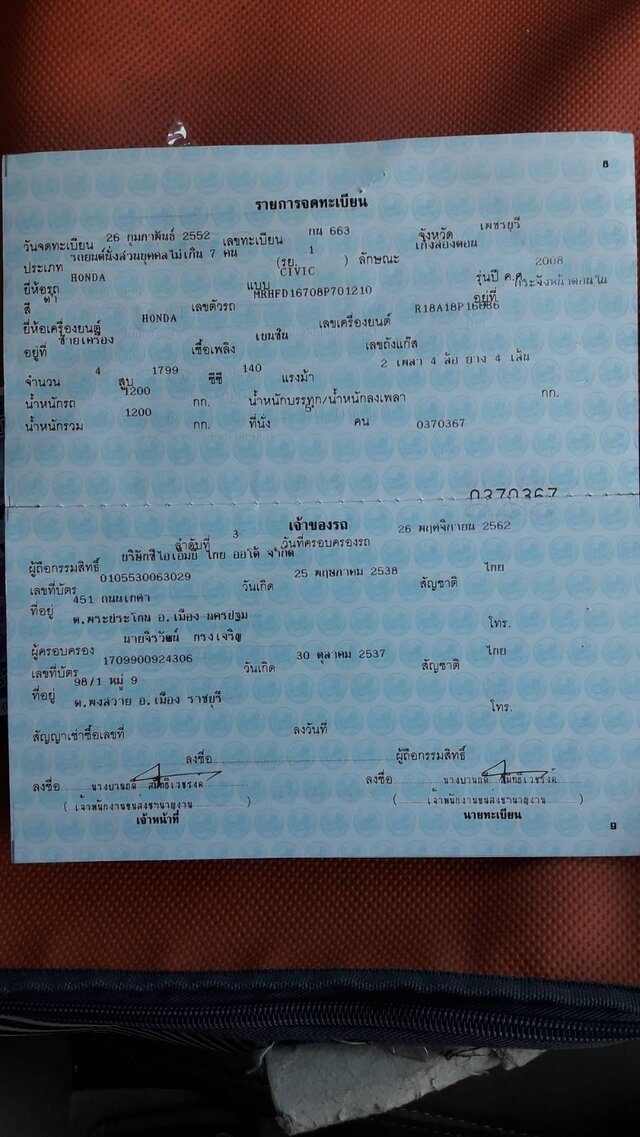 8
รายการจดทะเบียน
วันจดทะเบียน 26 กุมภาพันธ์ 2552 เลขทะเบียน กน 663 จังหวัด เพชรบุรี
ประเภท รถยนต์นั่งส่วนบุคคลไม่เกิน 7 คน (รย. 1 ) ลักษณะ เก๋งสองตอน
ยี่ห้อรถ HONDA แบบ CIVIC รุ่นปี ค.ศ. 2008
สี ดำ เลขตัวรถ MRHFD16708P701210 อยู่ที่ กระจังหน้าตอนใน
ยี่ห้อเครื่องยนต์ HONDA เลขเครื่องยนต์ R18A18P16686
อยู่ที่ ซ้ายเครื่อง เชื้อเพลิง เบนซิน เลขถังแก๊ส
จำนวน 4 สูบ 1799 ซีซี 140 แรงม้า 2 เพลา 4 ล้อ ยาง 4 เส้น
น้ำหนักรถ 1200 กก. น้ำหนักบรรทุก/น้ำหนักลงเพลา กก.
น้ำหนักรวม 1200 กก. ที่นั่ง คน 0370367
0370367
เจ้าของรถ
ลำดับที่ 3 วันที่ครอบครองรถ 26 พฤศจิกายน 2562
ผู้ถือกรรมสิทธิ์ บริษัทซีไอเอ็มบี ไทย ออโต้ จำกัด
เลขที่บัตร 0105530063029 วันเกิด 25 พฤษภาคม 2538 สัญชาติ ไทย
ที่อยู่ 451 ถนนเทศา
ต.พระประโทน อ.เมือง นครปฐม โทร.
ผู้ครอบครอง นายจิรวัฒน์ ทรงเจริญ
เลขที่บัตร 1709900924306 วันเกิด 30 ตุลาคม 2537 สัญชาติ ไทย
ที่อยู่ 98/1 หมู่ 9
ต.พงสวาย อ.เมือง ราชบุรี โทร.
สัญญาเช่าซื้อเลขที่ ลงวันที่
ลงชื่อ ผู้ถือกรรมสิทธิ์
ลงชื่อ ลงชื่อ
( เจ้าพนักงานขนส่งชำนาญงาน ) ( เจ้าพนักงานขนส่งชำนาญงาน )
เจ้าหน้าที่ นายทะเบียน
9